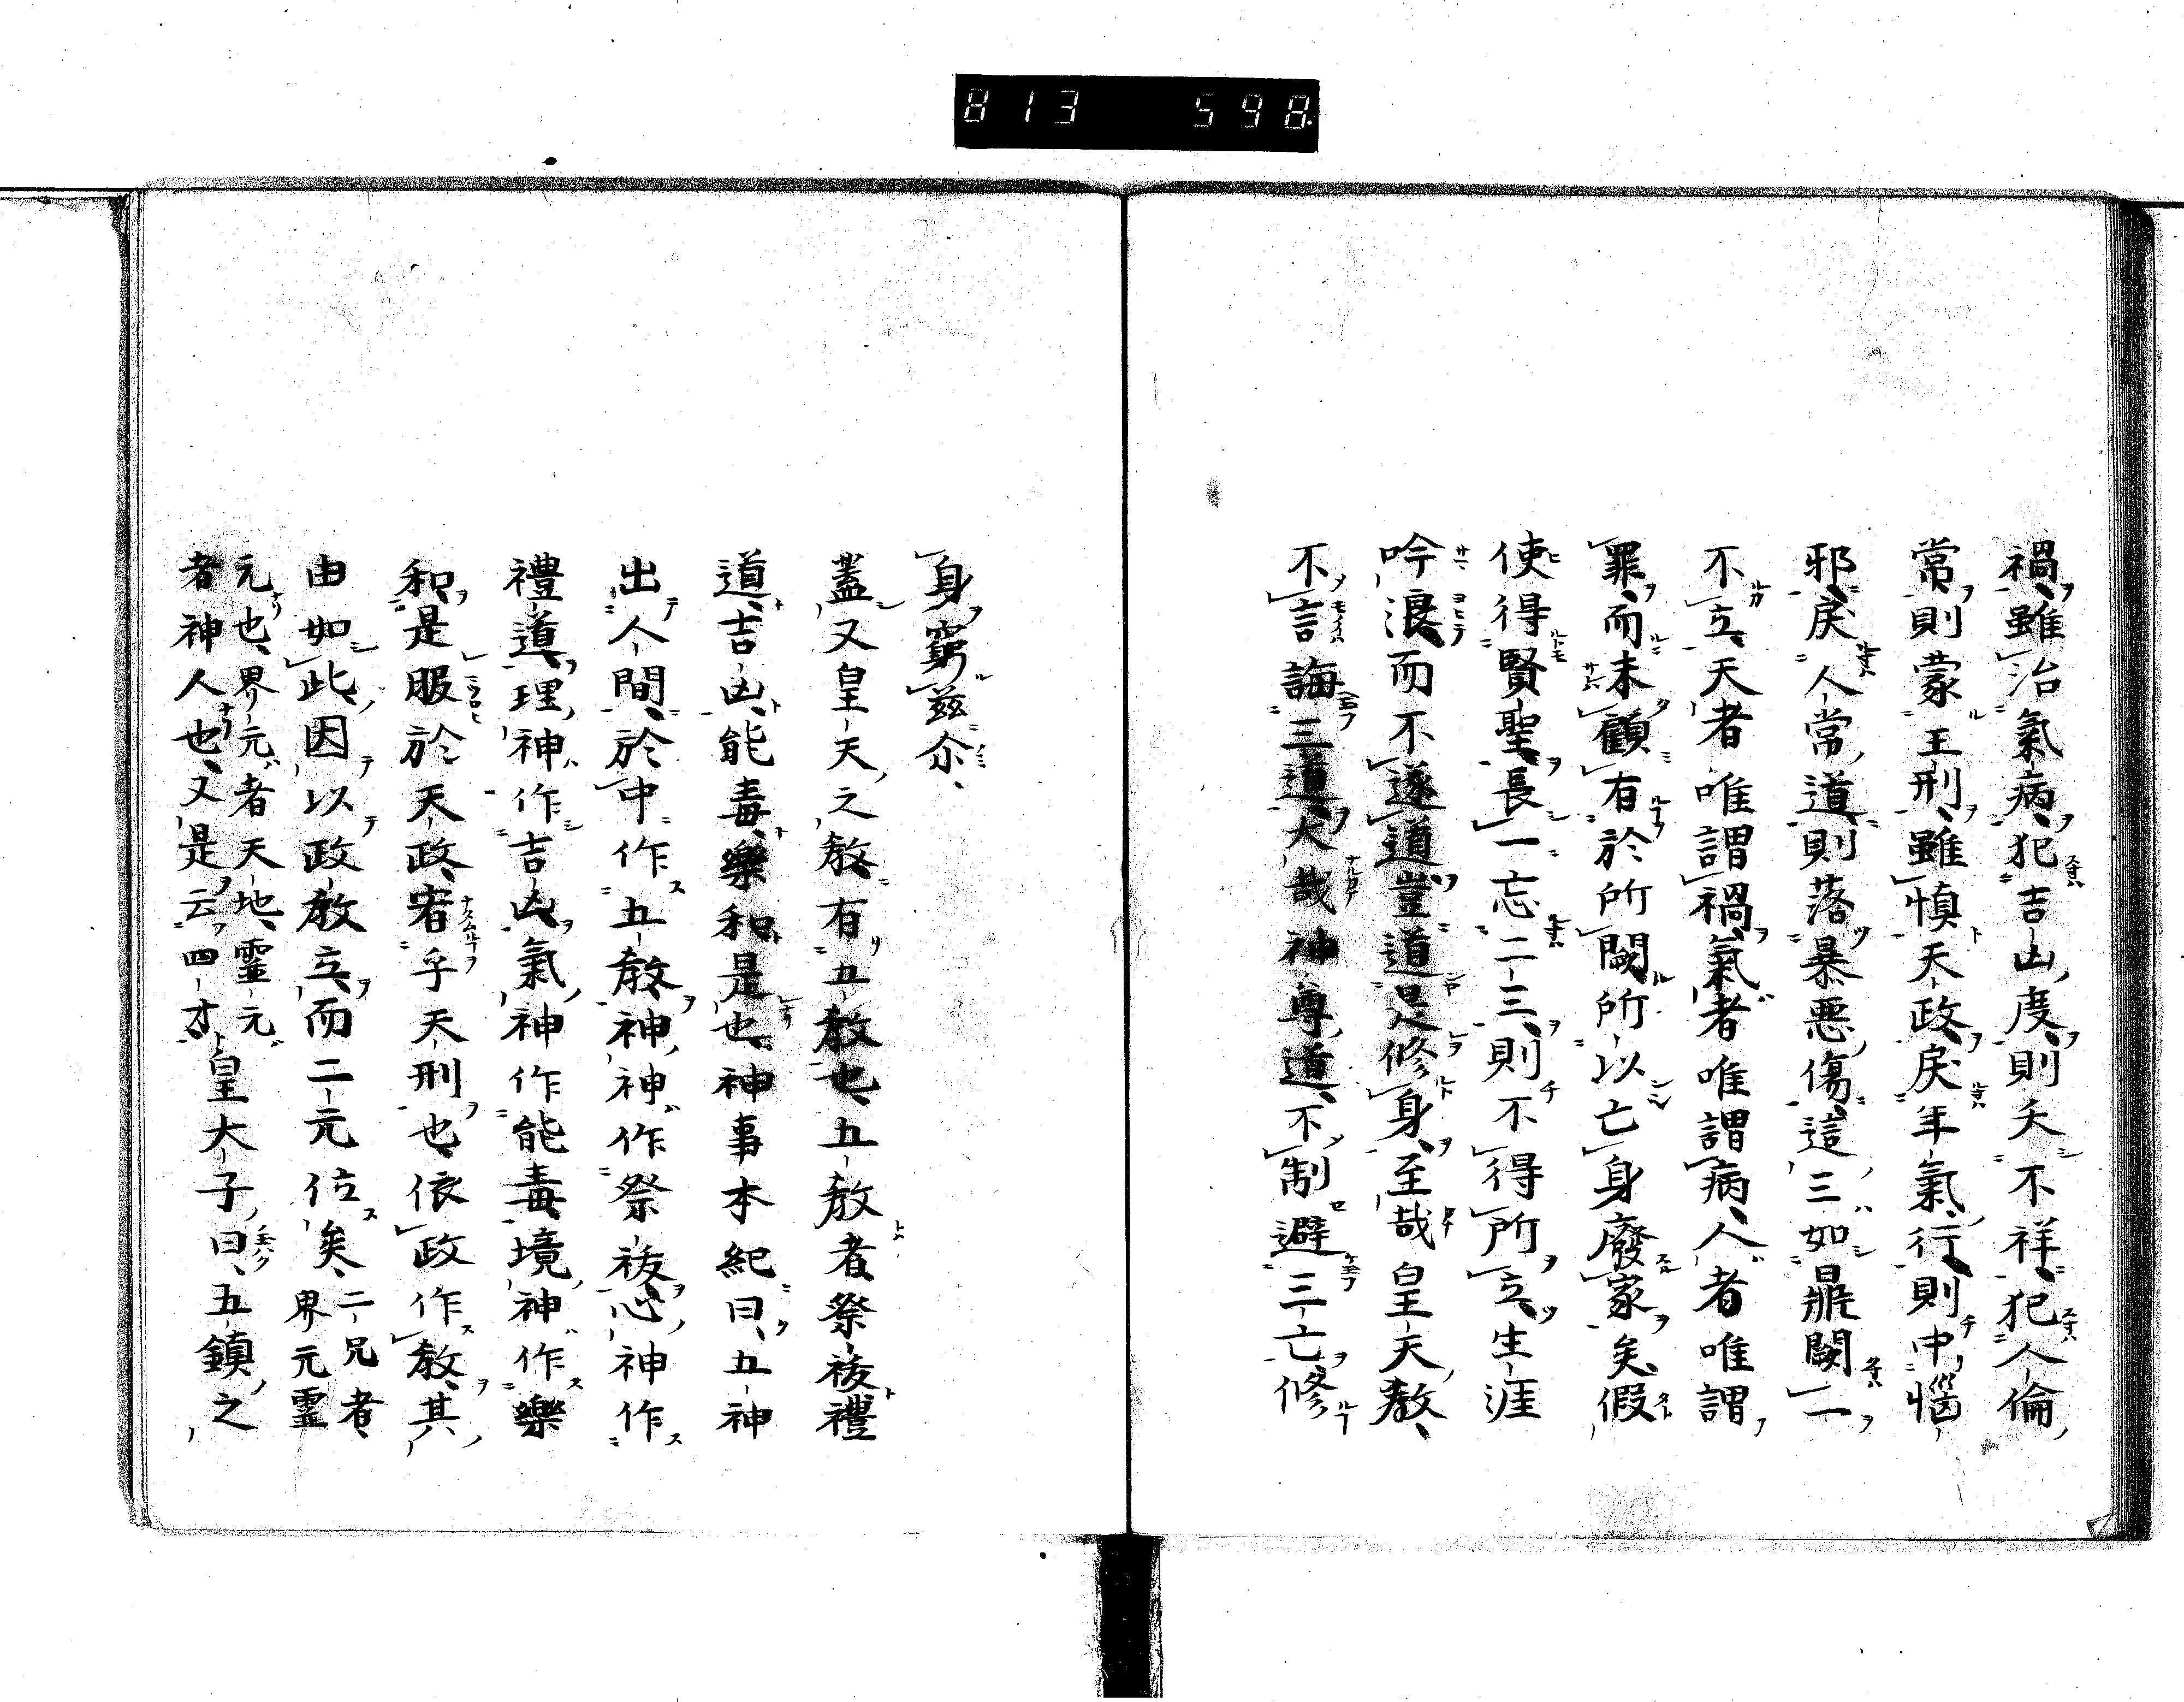 813 598.
禍、雖治氣病、犯吉凶度、則夭不祥、犯人倫
常、則蒙王刑、雖慎天政、戻年氣、行則中惱
邪、戻人常道則落暴悪傷、這三如鼎闕一
不立、天者唯謂禍、氣者唯謂病、人者唯謂
罪、而未顧有於所闕所以亡身廢家矣、假
使得賢聖、長一忘二三、則不得所立、生涯
吟浪、而不遂道、豈道足修身、至哉皇天教、
不言誨三道、大哉神尊道、不制避三亡修
身窮兹尒、
蓋又皇天之教有五教也、五教者、祭祓、禮
道、吉凶、能毒、樂和是也、神事本紀曰、五神
出人間、於中作五教、神神作祭祓心、神作
禮道理、神作吉凶氣、神作能毒境、神作樂
和、是服於天政、宥乎天刑也、依政作教、其
由如此、因以政教立、而二元位矣、二元者、界元靈
元也、界元者天地、靈元
者神人也、又是云四才、皇太子曰、五鎮之